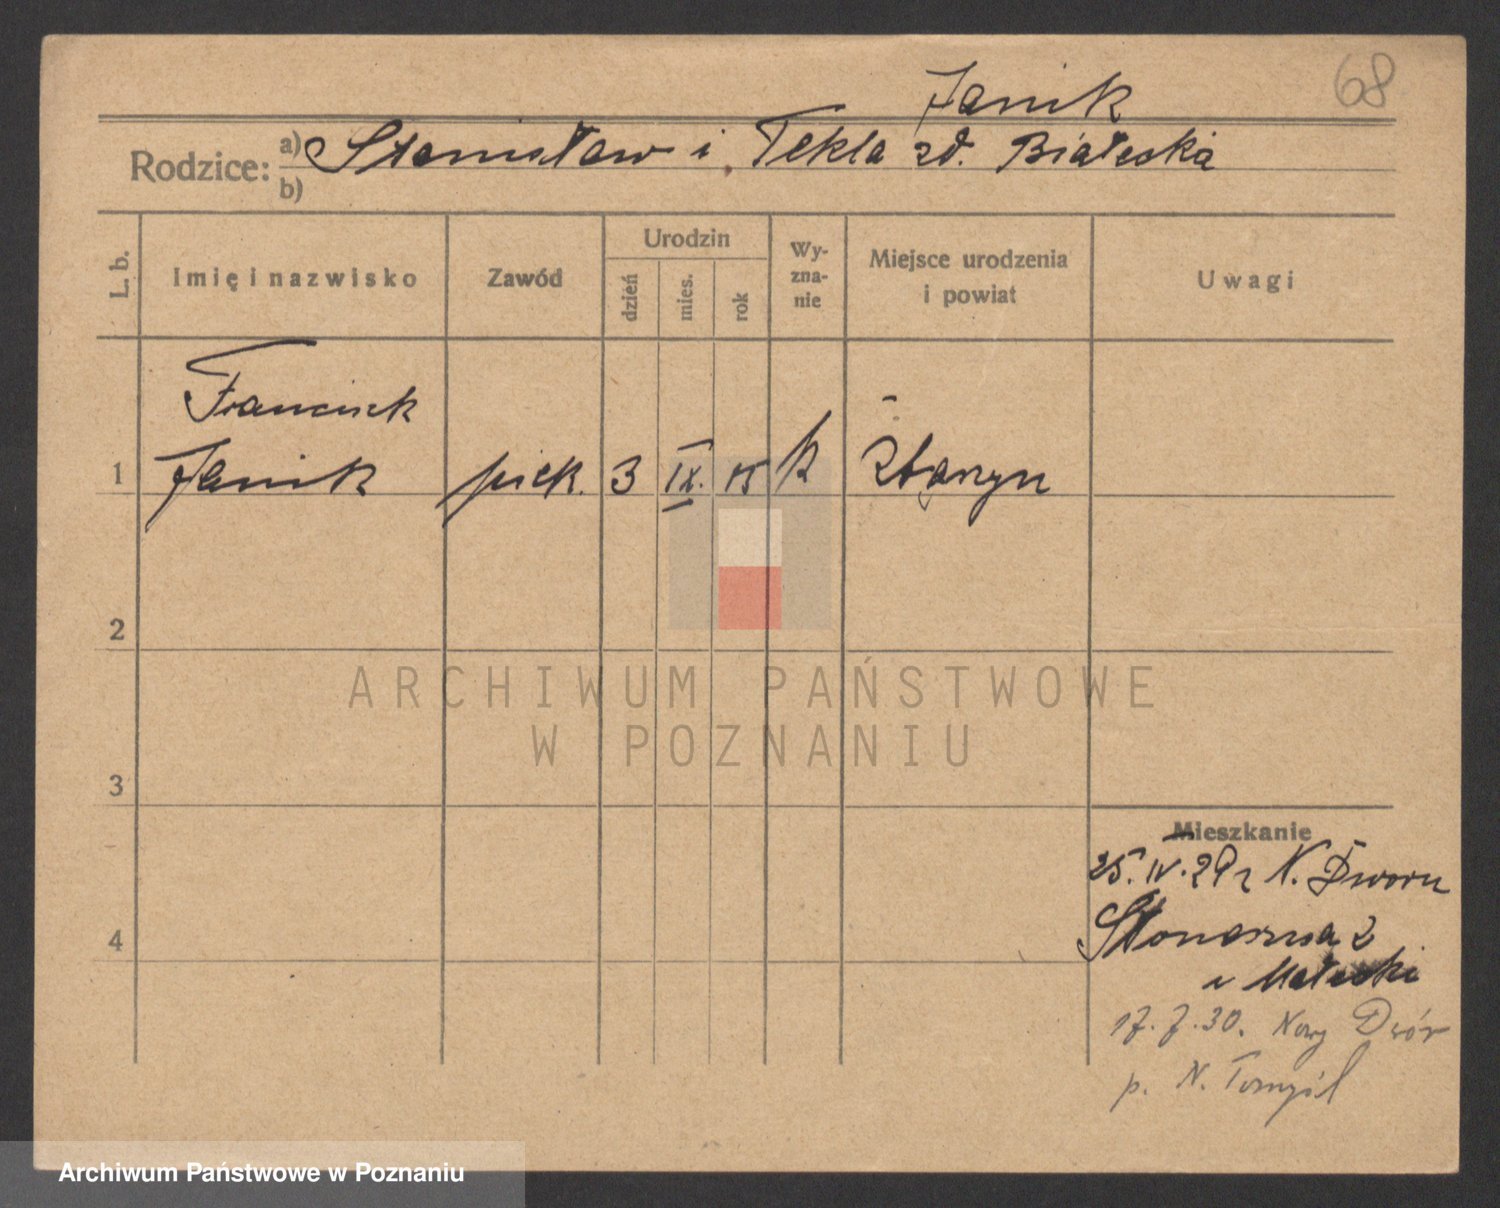 68
Janik
Rodzice: a) Stanisław i Tekla zd. Białecka
b)
L. b. Imię i nazwisko Zawód Urodzin dzień mies. rok Wy-zna-nie Miejsce urodzenia i powiat Uwagi
Franciszk
1 Janik piek. 3 IX. 15 k Zbąszyn
2
ARCHIWUM PAŃSTWOWE
W POZNANIU
3
Mieszkanie
25. IV. 29 r N. Dworu
4 2
Małecki
17. 7. 30. Nowy Dwór
p. N. Tomyśl
Archiwum Państwowe w Poznaniu